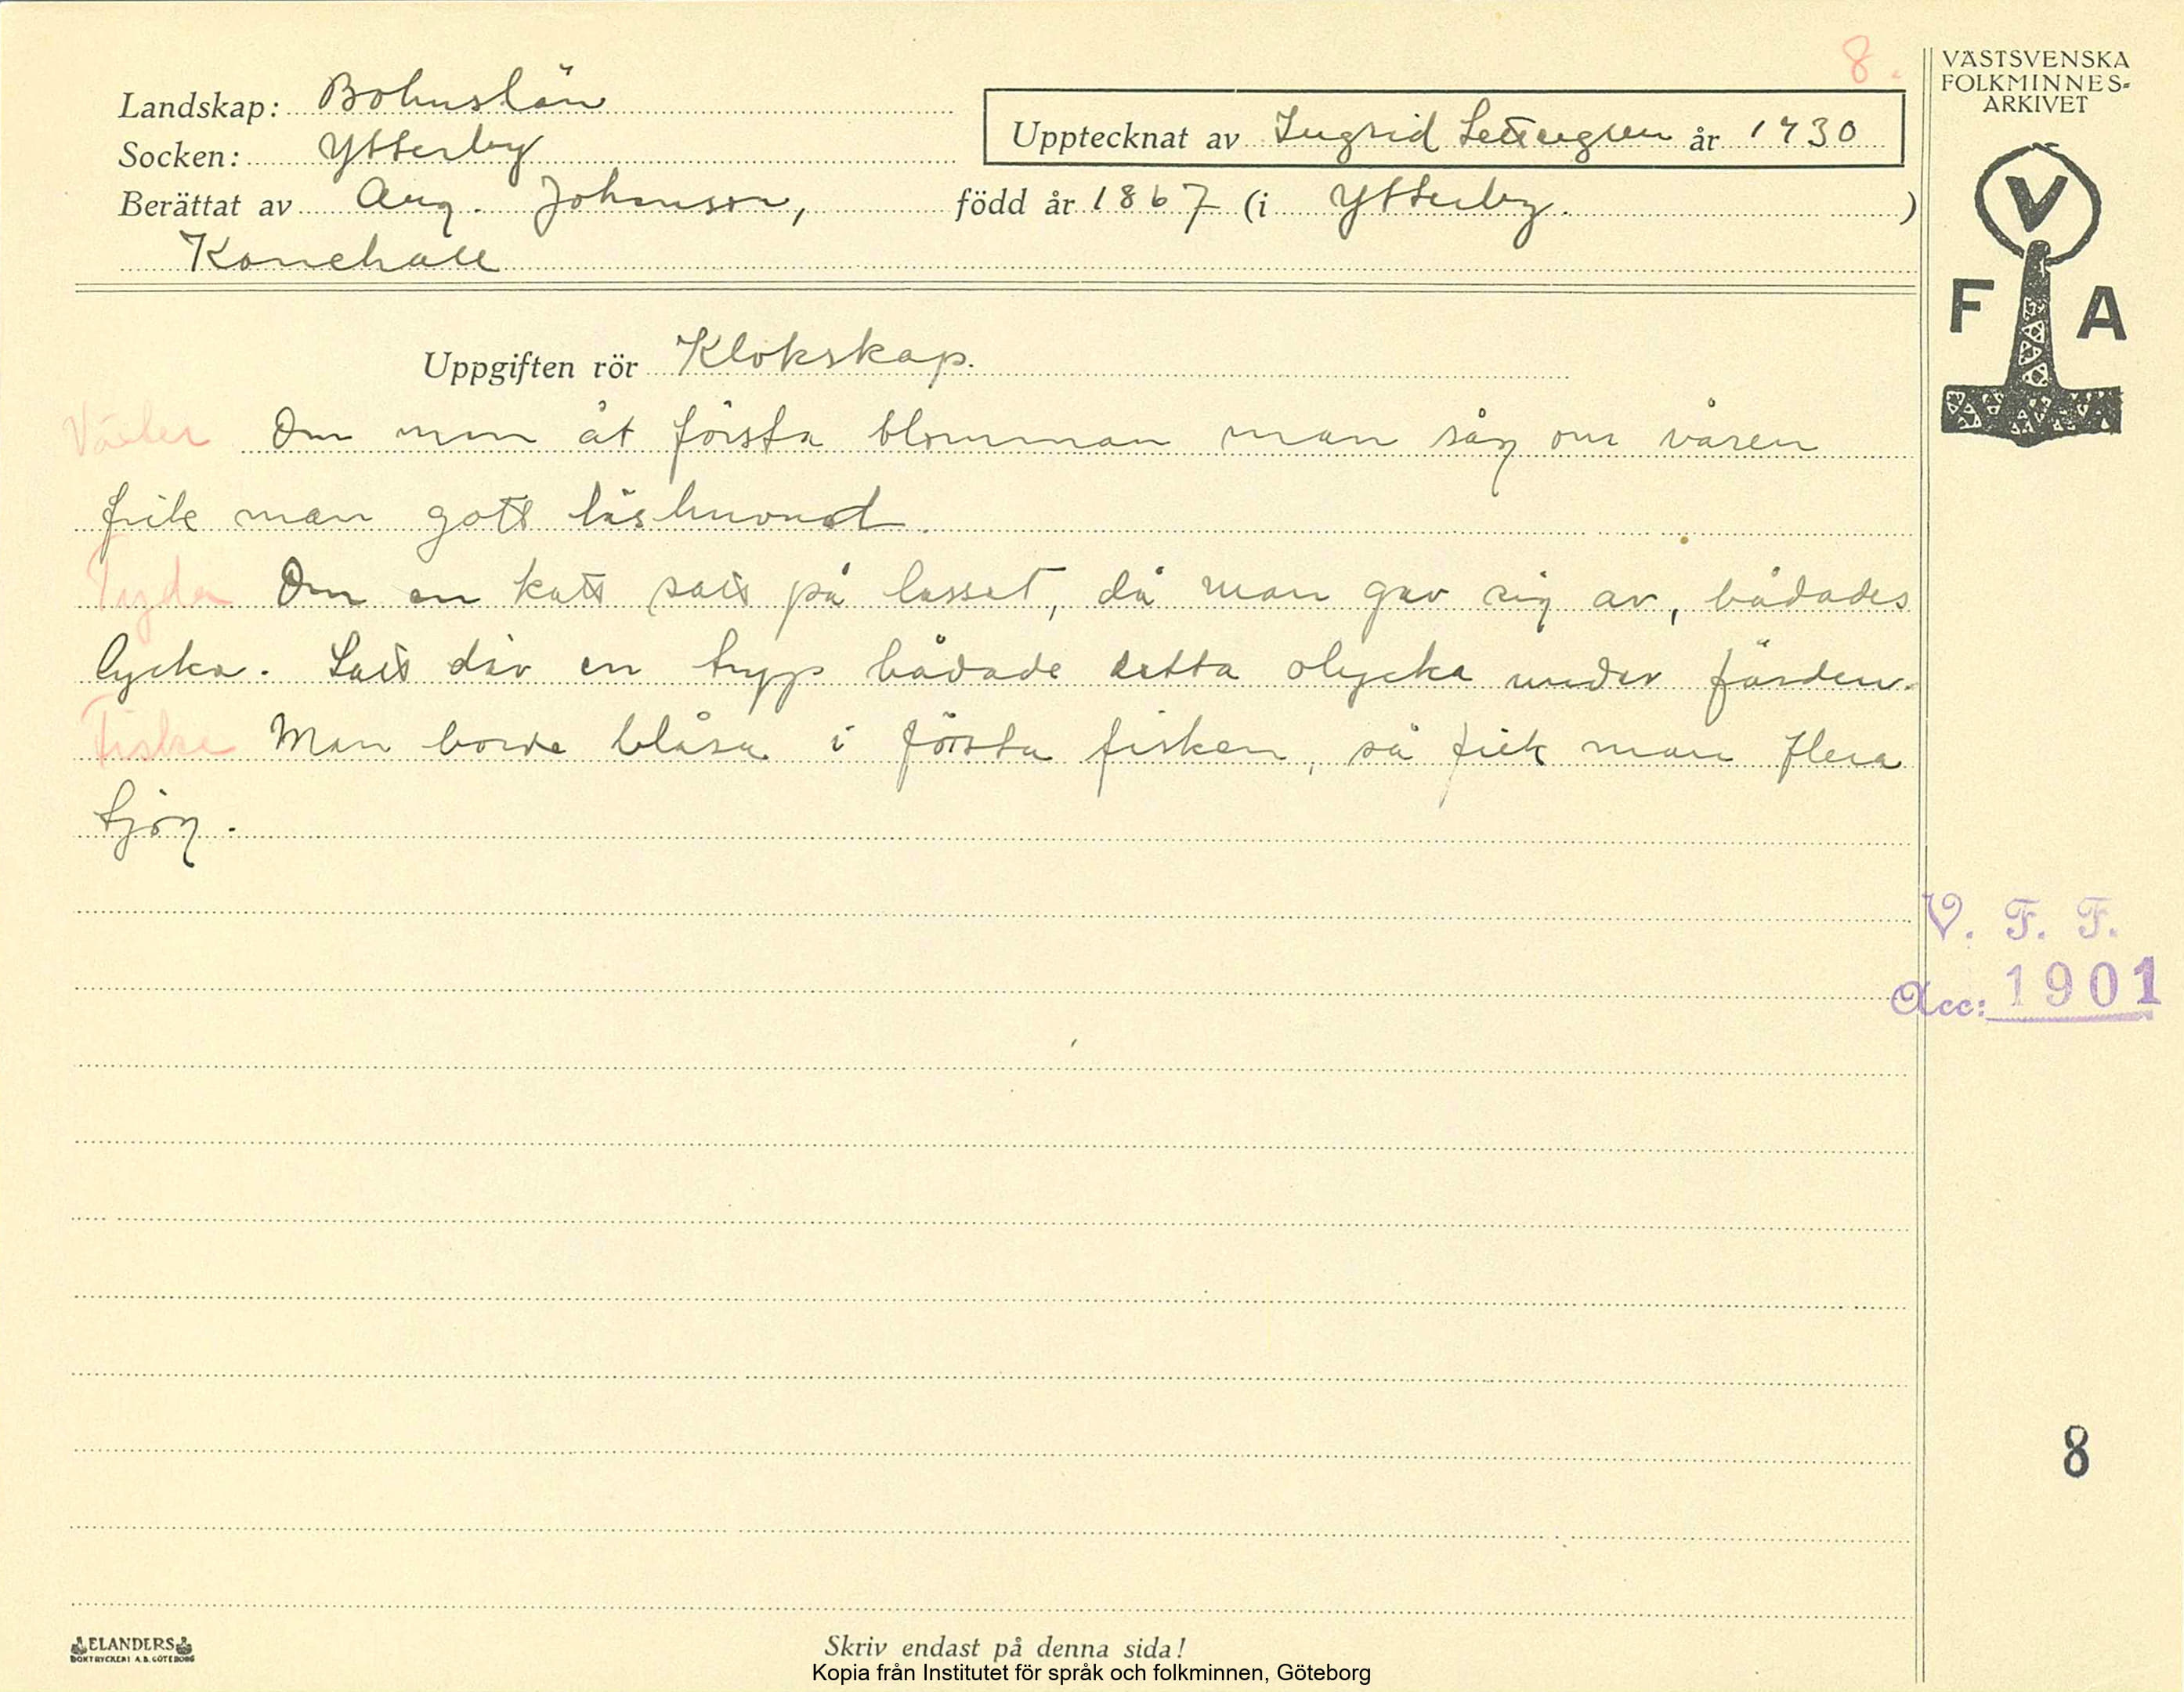 8.
VÄSTSVENSKA
FOLKMINNES-
ARKIVET
Landskap: Bohuslän
Upptecknat av Ingrid år 1930
Socken: Ytterby
Berättat av Aug. Johansson, född år 1867 (i Ytterby. )
V
F A
Uppgiften rör Klokskap.
Växter Om man åt första blomman man såg om våren
fick man gott läshuvud.
Tyda Om en katt satt på lasset, då man gav sig av, bådades
lycka. Satt där en tupp bådade detta olycka under färden.
Fiske Man borde blåsa i första fisken, så fick man flera
tjog.
V. F. F.
Acc: 1901
8
ELANDERS
BOKTRYCKERI A.B. GÖTEBORG
Skriv endast på denna sida!
Kopia från Institutet för språk och folkminnen, Göteborg